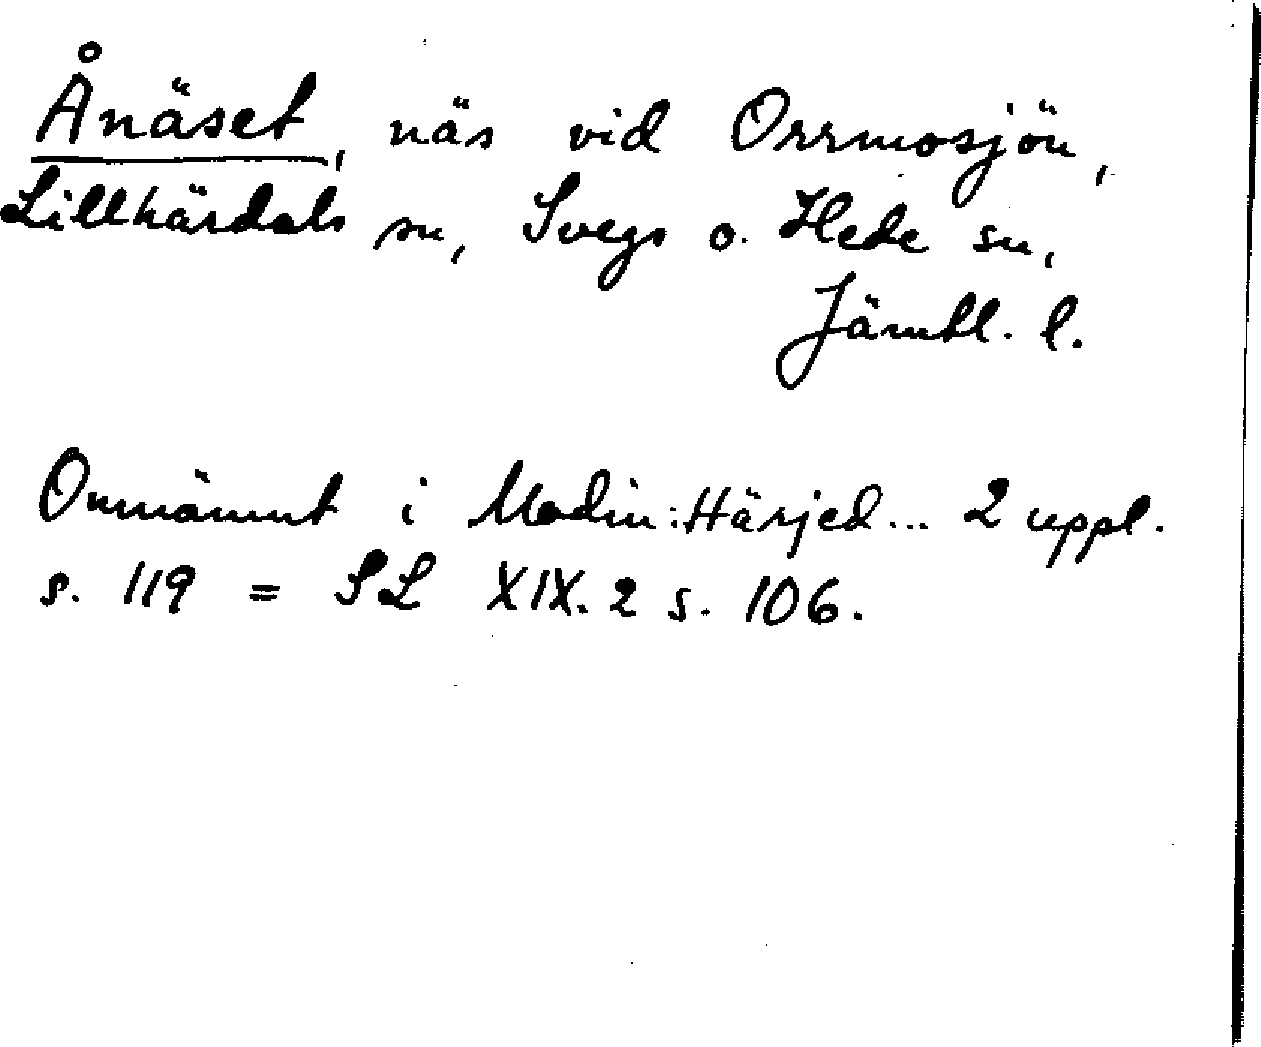 Ånäset, näs vid Orrmosjön,
Lillhärdals sn, Svegs o. Hede sn,
Jämtl. l.
Omnämnt i Modin: Härjed... 2 uppl.
s. 119 = SL XIX. 2 s. 106.